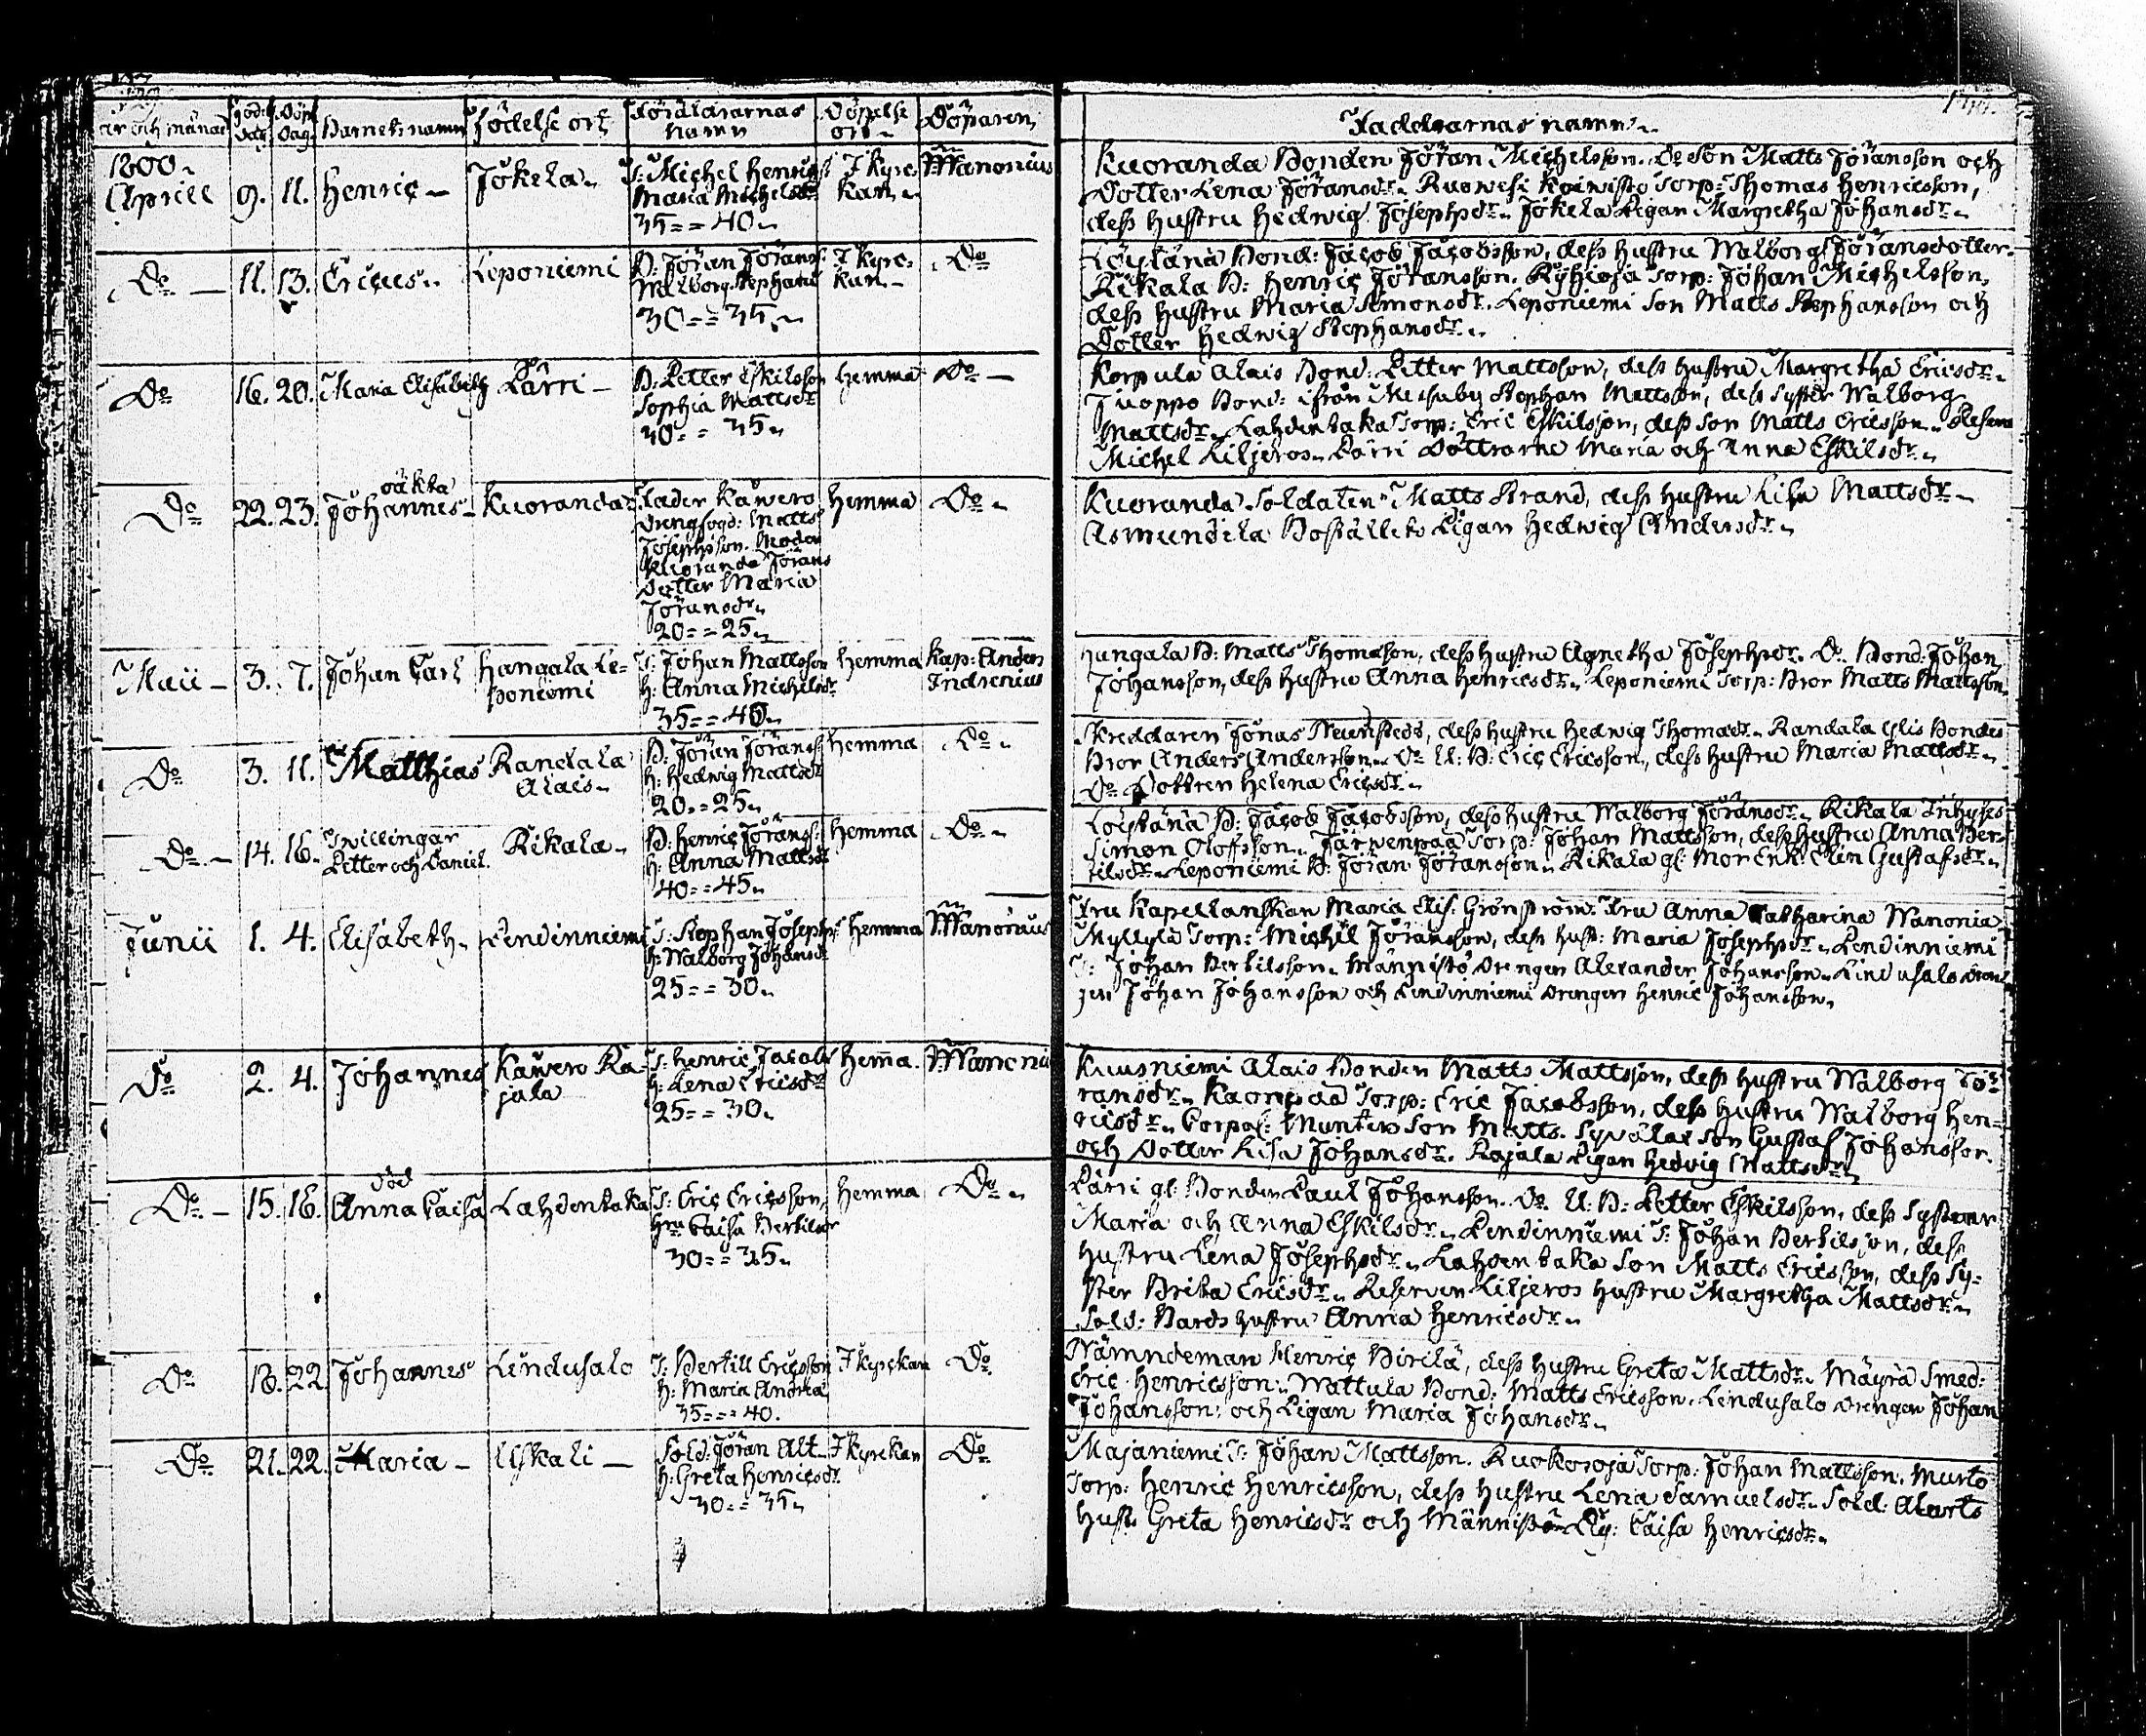 år och månad Föd: Dag Döp: Dag Barnets namn Födelse ort Föräldrarnas namn Döpelse ort Döparen
Faddrarnas namn
1800.
Aprill 9. 11. Henric Jokela T: Michel Henrics: I kyrc- W:Wanonius
Maria Michelsdr kan
35 = = 40
Kuoranda Bonden Jöran Michelsson. Do Son Matts Jöransson och
Dotter Lena Jöransdr. Ruowesi Koiwisto Torp: Thomas Henricsson,
dess hustru Hedwig Josephsdr. Jokela Pigan Margretha Johansdr.
Do 11. 13. Ericus Leponiemi B: Jöran Jöranss: I kyrc- Do
Walborg Stephansd kan
30 = = 35
Löytänä Bond: Jacob Jacobsson, dess hustru Walborg Jöransdotter.
Rikala B: Henric Jöransson. Torp: Johan Michelsson,
dess hustru Maria Simonsdr. Leponiemi Son Matts Stephansson och
Dotter Hedwig Stephansdr.
Do 16. 20. Maria Elisabeth Pärri B: Petter Eskilsson hemma Do
Sophia Mattsdr
30 = = 35
Korpula Alais Bond: Petter Mattsson, dess hustru Margretha Ericsdr.
Juoppo Bond: ifrån Stephan Mattsson, dess Syster Walborg
Mattsdr. Lahdentaka Torp: Eric Eskilsson, dess Son Matts Ericsson.
Michel Liljeros. Pärri Döttrarne Maria och Anna Eskilsdr.
oäkta
Do 22. 23. Johannes Kuoranda Fader Kawero hemma Do
Drengfogd: Matts
Josephsson. Moder
Kuoranda Jörans
Dotter Maria
Jöransdr.
20 = = 25
Kuoranda Soldaten Matts Strand, dess hustru Lisa Mattsdr.
Asmundila Boställets Pigan Hedwig Andersdr.
Maii 3. 7. Johan Carl Hangala Le- T: Johan Mattsson hemma Kap: Anders
poniemi H: Anna Michelsdr Indrenius
35 = = 40
Hangala B: Matts Thomasson, dess hustru Agnetha Josephsdr. Do Bond: Johan
Johansson, dess hustru Anna Henricsdr. Leponiemi Torp: Bror Matts Mattsson.
Do 3. 11. Matthias Randala B: Jöran Jöranss: hemma Do
Alais H: Hedwig Mattsdr
20 = = 25
Jonas dess hustru Hedwig Thomasdr. Randala Bondes
Bror Anders Andersson. Do U: B: Eric Ericsson, dess hustru Maria Mattsdr.
Do Dottren Helena Ericsdr.
Do 14. 16. Twillingar Rikala B: Henric Jöranss: hemma Do
Petter och Daniel. H: Anna Mattsdr
40 = = 45
Löytänä B: Jacob Jacobsson, dess hustru Walborg Jöransdr. Rikala Inhyses
Simon Oloffsson. Järwenpää Torp: Johan Mattsson, dess hustru Anna Ber-
tilsdr. Leponiemi B: Jöran Jöransson. Rikala gl: Mor Enk: Elin Gustafsdr.
Junii 1. 4. Elisabeth Lendinniemi T: Stephan Josephss: hemma W:Wanonius
H: Walborg Johansdr
25 = = 30
Fru Kapellanskan Maria Elis: Grönström. Fru Anna Catharina Wanonia.
Myllylä Torp: Michel Jöransson, dess hust: Maria Josephsdr. Lendinniemi
T: Johan Bertilsson. Männistö Drengen Alexander Johansson. Lindusalo Dren-
gen Johan Johansson och Lendinniemi Drengen Henric Johansson.
Do 2. 4. Johannes Kawero Ra- T: Henric Jacobs: hema. W:Wanonius
jala H: Lena Ericsdr
25 = = 30
Kuusniemi Alais Bonden Matts Mattsson, dess hustru Walborg Jö-
ransdr. Torp: Eric Jacobsson, dess hustru Walborg Hen-
ricsdr. Corpor: Munters Son Matts. Son Gustaf Johansson
och Dotter Lisa Johansdr. Rajala Pigan Hedvig Mattsdr.
död
Do 15. 16. Anna Caisa Lahdentaka T: Eric Ericsson, hemma Do
Hru Caisa Bertilsdr
30 = = 35
Pärri gl: Bonden Paul Johansson. Do U: B: Petter Eskilsson, dess Systrar
Maria och Anna Eskilsdr. Lendinniemi T: Johan Bertilsson, dess
hustru Lena Josephsdr. Lahdentaka Son Matts Ericsson, dess Sy-
ster Brita Ericsdr. Reserven Liljeros hustru Margretha Mattsdr.
Sold: Bards hustru Anna Henricsdr.
Do 18. 22. Johannes Lindusalo T: Bertill Ericsson I kyrckan Do
H: Maria Andrea
35 = = 40.
Nämndeman Henric Birilä, dess hustru Greta Mattsdr. Mäyrä Smed:
Eric Henricsson. Wattula Bond: Matts Ericsson. Lindusalo Drengen Johan
Johansson: och Pigan Maria Johansdr.
Do 21. 22. Maria Uskali Sold: Jöran Alt I kyrckan Do
H: Greta Henricsdr.
30 = = 35
Majaniemi T: Johan Mattsson. Ruokoroja Torp: Johan Mattsson. Murto
Torp: Henric Henricsson, dess hustru Lena Samuelsdr. Sold: Alarts
hust: Greta Henricsdr och Männistö Caisa Henricsdr.